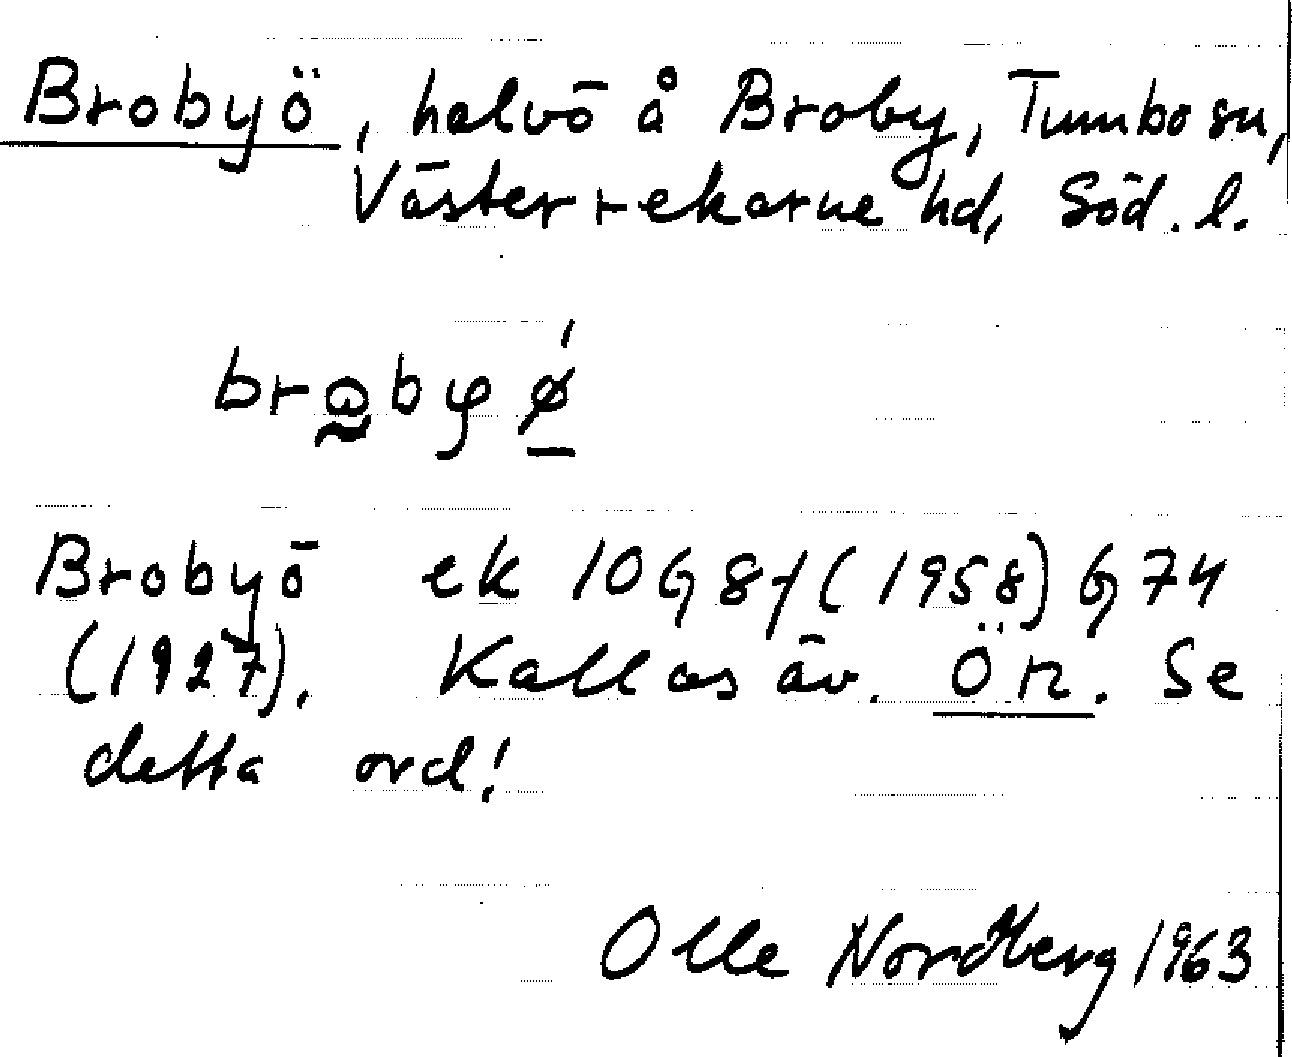 Brobyö, halvö å Broby, Tumbo sn,
Västerrekarne hd, Söd. l.
Brobyö ek 10G8f (1958) G74
(1927). Kallas äv. Ön. Se
detta ord!
Olle Nordberg 1963